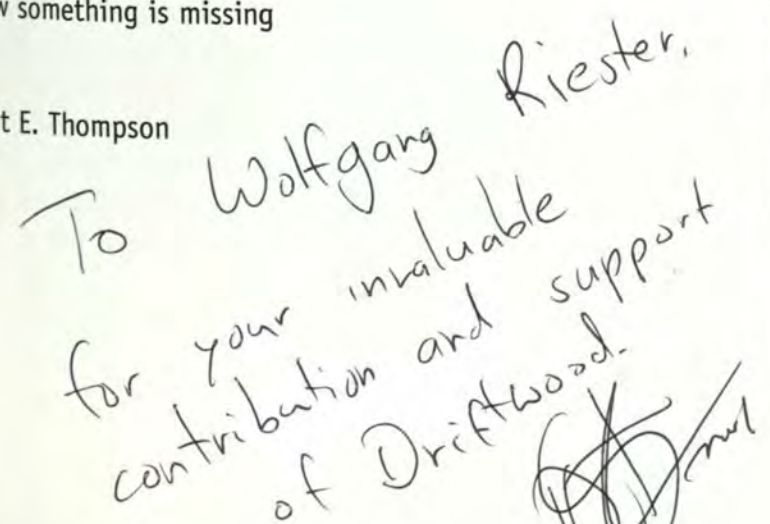 something is missing
t E. Thompson
To Wolfgang Riester,
for your invaluable
contribution and support
of Driftwood.